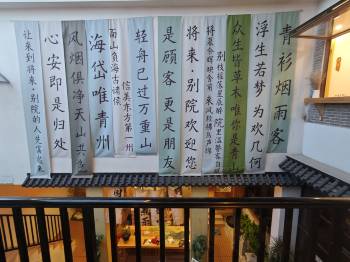 青衫烟雨客
浮生若梦为欢几何
众生皆草木唯你是青山
将来·别院欢迎您
是顾客更是朋友
轻舟已过万重山
信美东方第一州
南山负海古诸侯
海岱唯青州
风烟俱净天山共色
心安即是归处
让来到将来·别院的人先富起来